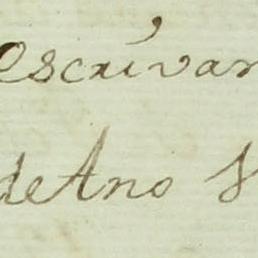 escrivan
de Ano